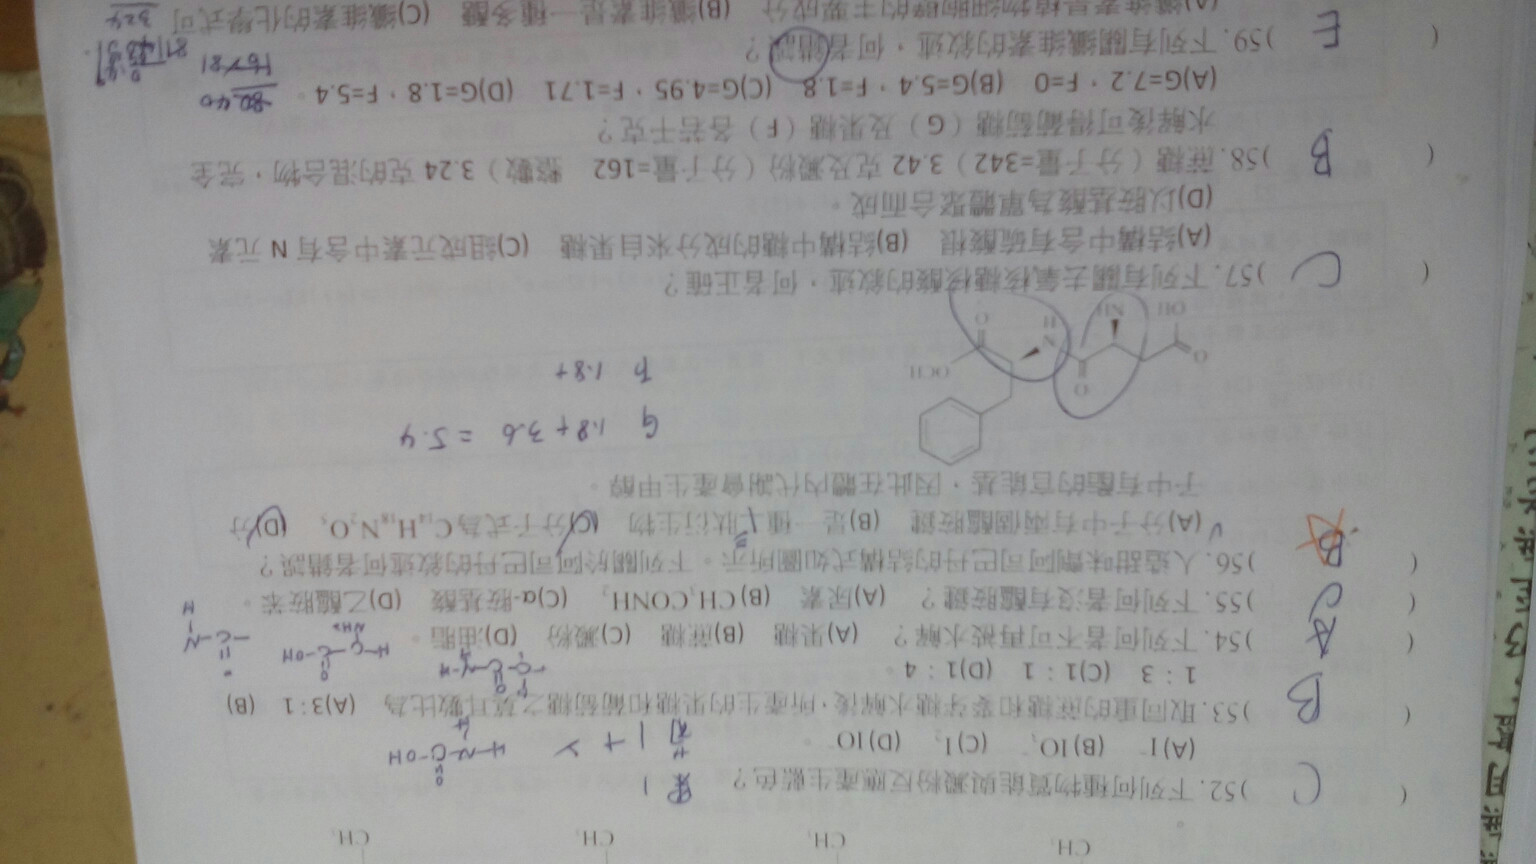 CH₃ CH₃ CH₃ CH₃
( C )52. 下列何種物質能與澱粉反應產生藍色?
(A)I⁻ (B)IO₃⁻ (C)I₂ (D)IO⁻
果 1
葡 1 + 2
( B )53. 取同重的蔗糖和麥芽糖水解後,所產生的果糖和葡萄糖之莫耳數比為 (A)3:1 (B)
1:3 (C)1:1 (D)1:4。
( A )54. 下列何者不可再被水解? (A)果糖 (B)蔗糖 (C)澱粉 (D)油脂。
( C )55. 下列何者沒有醯胺鍵? (A)尿素 (B)CH₃CONH₂ (C)α-胺基酸 (D)乙醯胺苯。
( B )56. 人造甜味劑阿司巴丹的結構式如圖所示。下列關於阿司巴丹的敘述何者錯誤?
(A)分子中有兩個醯胺鍵 (B)是一種二肽衍生物 (C)分子式為C₁₄H₁₈N₂O₅ (D)分
子中有酯的官能基,因此在體內代謝會產生甲醇。
G 1.8 + 3.6 = 5.4
F 1.8 +
O HO NH₂ O N H O OCH₃
( C )57. 下列有關去氧核糖核酸的敘述,何者正確?
(A)結構中含有硫酸根 (B)結構中糖的成分來自果糖 (C)組成元素中含有 N 元素
(D)以胺基酸為單體聚合而成。
( B )58. 蔗糖(分子量=342)3.42 克及澱粉(分子量=162 整數)3.24 克的混合物,完全
水解後可得葡萄糖(G)及果糖(F)各若干克?
(A)G=7.2,F=0 (B)G=5.4,F=1.8 (C)G=4.95,F=1.71 (D)G=1.8,F=5.4。
( E )59. 下列有關纖維素的敘述,何者錯誤?
(A)纖維素是植物細胞壁的主要成分 (B)纖維素是一種多醣 (C)纖維素的化學式可
324